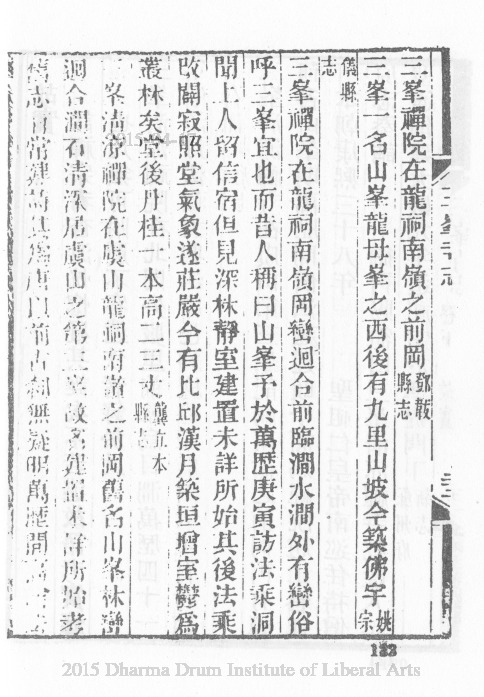 三峯禪院在龍祠南嶺之前岡鄧韍縣志
三峯 名山峯龍母峯之西後有九里山坡今築佛宇姚宗
儀縣志
三峯禪院在龍祠南嶺岡巒迴合前臨澗水澗外有巒俗
呼三峯宜也而昔人稱曰山峯予於萬歷庚寅訪法乘洞
聞上人留信宿但見深林靜室建置未詳所始其後法乘
改關寂照堂氣象遂莊嚴今有比邱漢月築垣增室鬱為
叢林矣堂後丹桂 本高二三丈龔立本縣志
三峯清涼禪院在虞山龍祠南嶺之前岡舊名山峯林巒
迴合澗石清深居虞山之第三峯故名建置未詳所始考
舊志 常建詩其為唐以前古刹無疑明萬歷間
三峯寺志
133
2015 Dharma Drum Institute of Liberal Arts